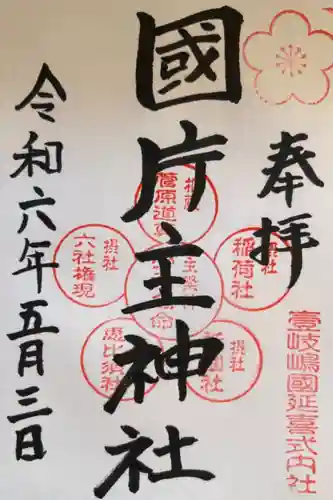 奉拝
壹岐嶋國延喜式内社
國片主神社
摂社
稲荷社
摂社
菅原道
摂社
六社権現
恵比須社
摂社
令和六年五月三日